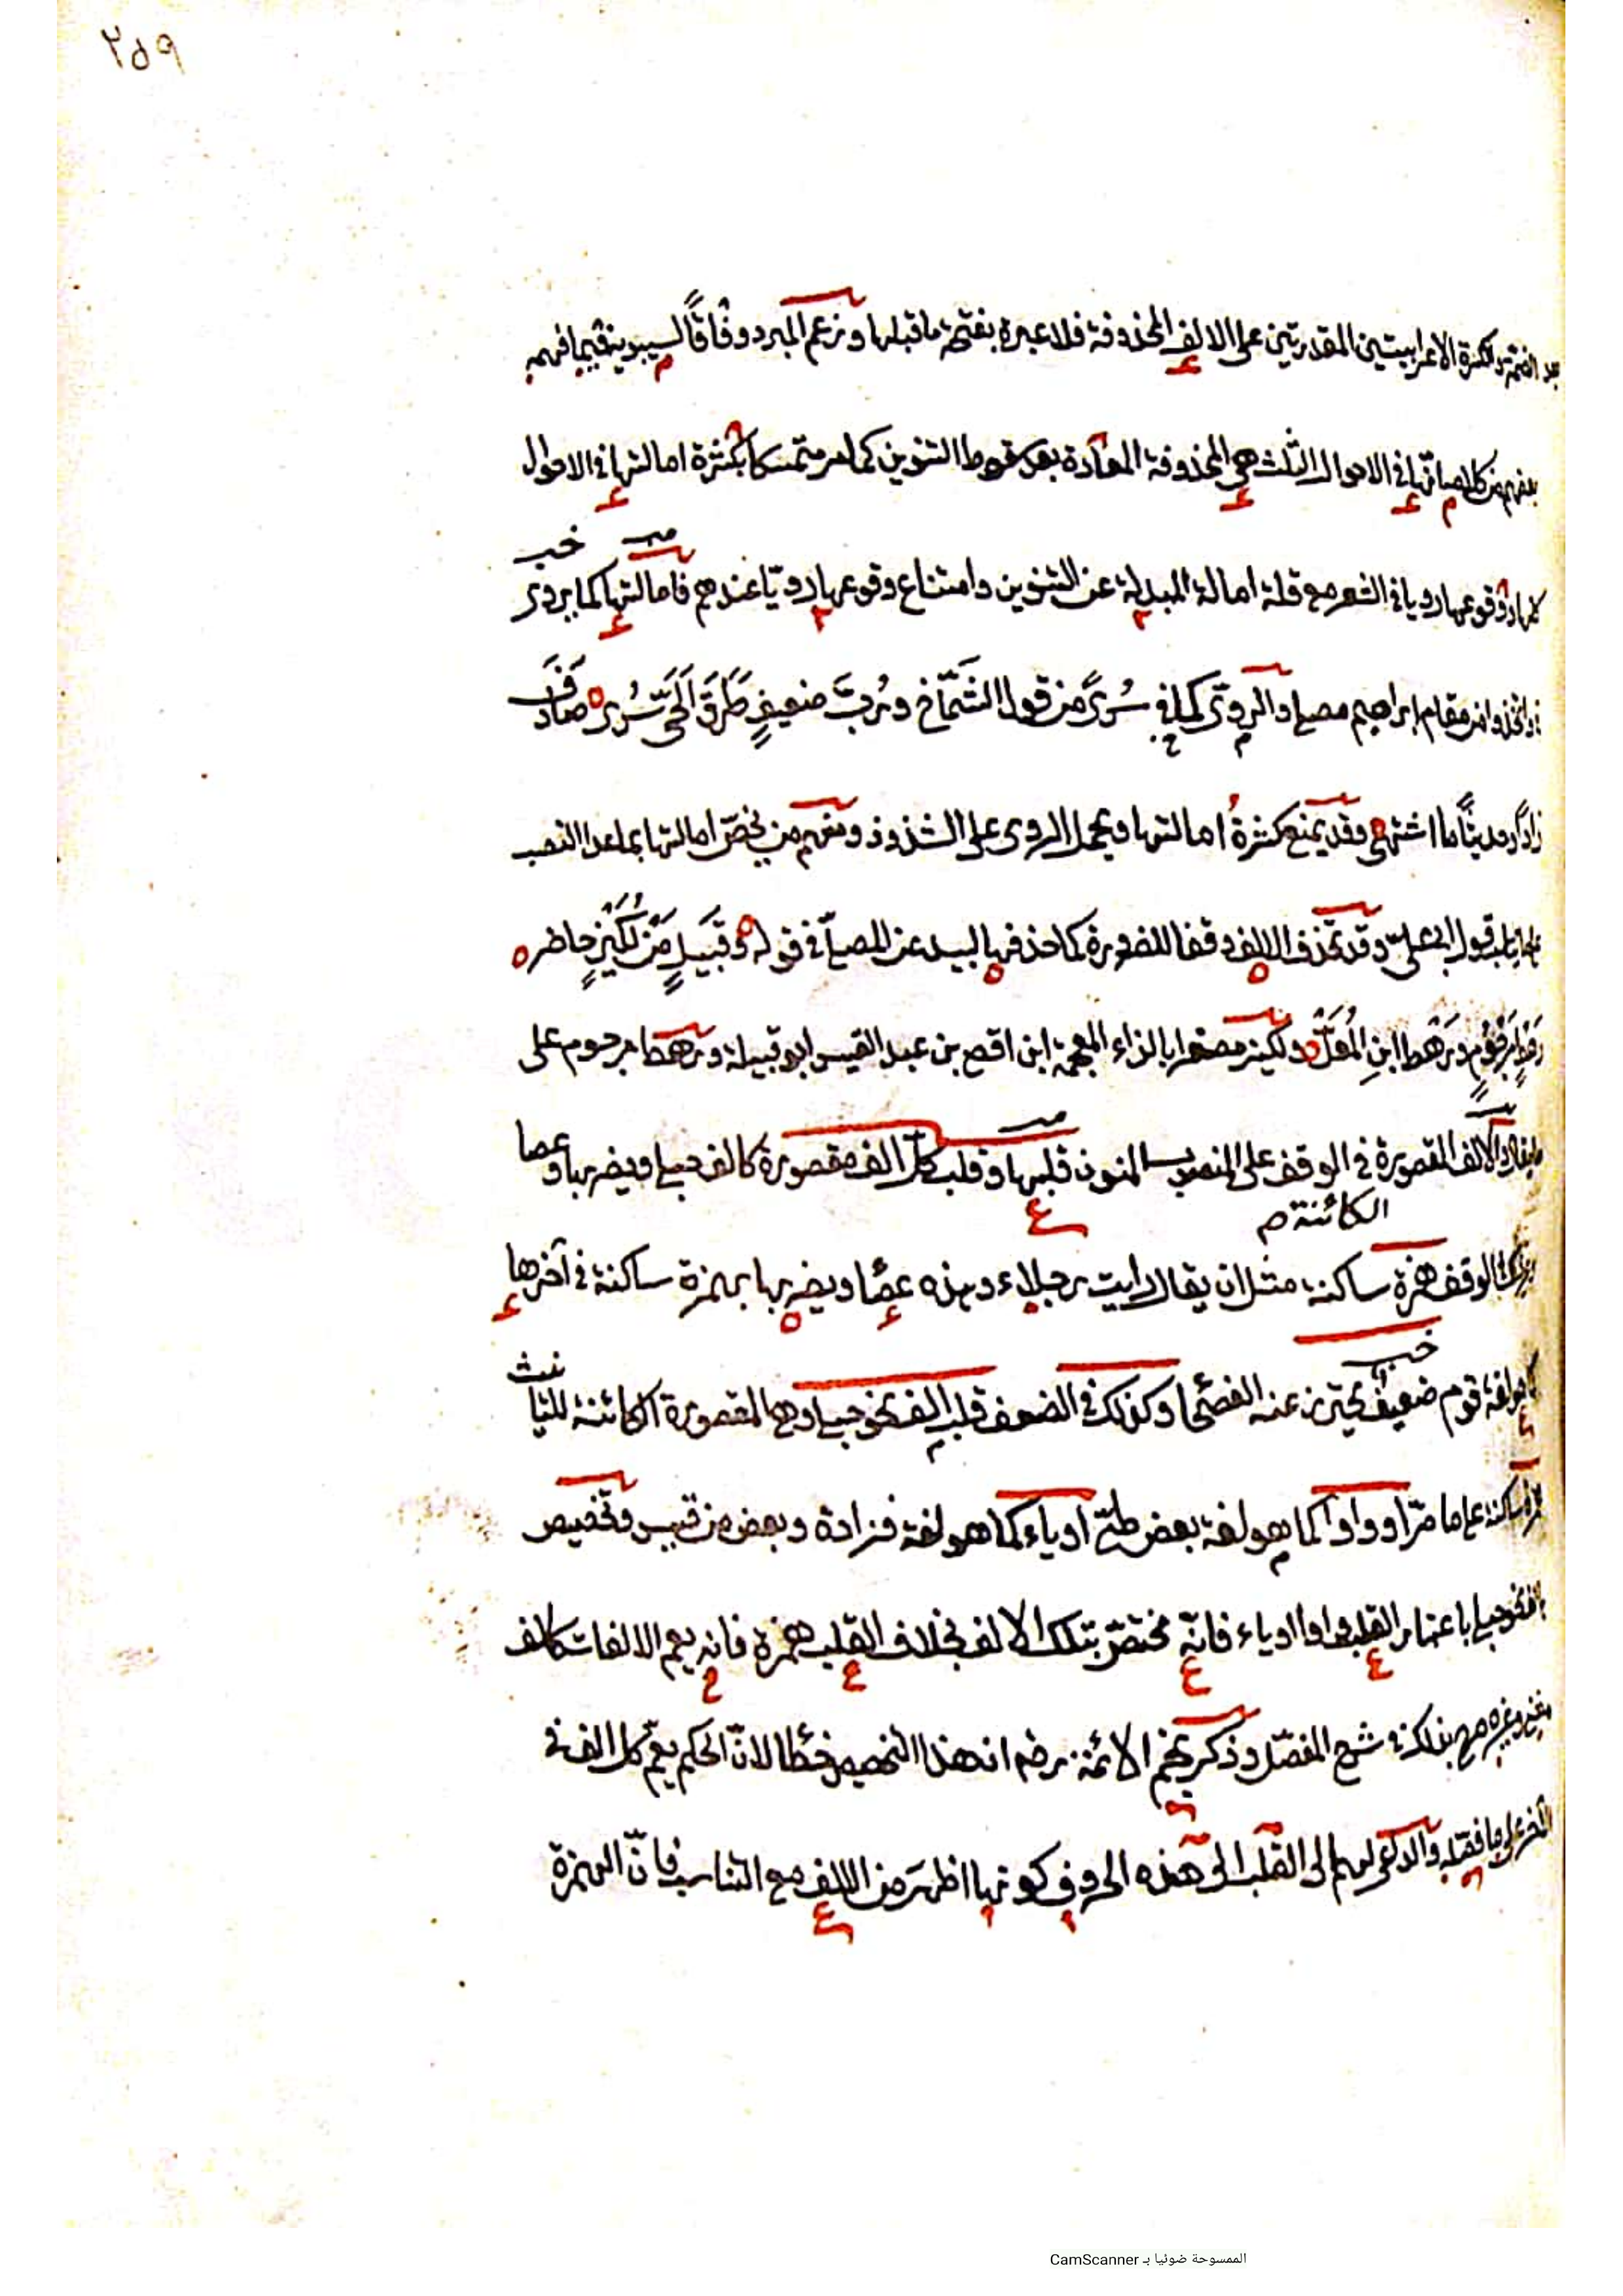 ٢٥٩
بعد الضمة والكسرة الاعرابيتين المقدرتين على الالف المحذوفة فلا عبرة بفتحة ما قبلها وزعم المبرد وفاقًا لسيبويه فيما فهمه
بعضهم من كلامه انها في الاحوال الثلث هي المحذوفة المعادة بعد سقوط التنوين كما مر متمسكا بكثرة امالتها في الاحوال
كلها ووقوعها رويا في الشعر مع قلة امالة المبدلة عن التنوين وامتناع وقوعها رويّا عندهم فامالتها كما يروى
في واتخذوا من مقام ابراهيم مصلى والروىّ كما في سُرىً من قول الشمّاخ ورُبَّ ضعيفٍ طَرَقَ الحىّ سُرى صادَفَ
زادًا وحديثًا ما اشتهى وقد يمنع كثرةُ امالتها ويحمل الروى على الشذوذ ومنهم من يخصّ امالتها بماعدا النصب
قول ابى علىّ وقد تحذف الالف وقفا للضرورة كما حذفها لبيد عن المعلّى في قوله وقَبيلٍ مَنْ لُكَيْزٍ حاضر
رهطِ مَرْجُومٍ ورَهْطِ ابنِ المُعَلّ ولكيز مصغرا بالزاء المعجمة ابن افصى بن عبد القيس ابو قبيلة ورهط مرجوم على
الالف المقصورة في الوقف على المنصوب المنون قلبها وقلب كل الف مقصورة كالف حبلى ويضربها وعصا
الكائنة م
في الوقف همزة ساكنة مثل ان يقال رايت رجلاء وهذه عصأ ويضربها بهمزة ساكنة في آخرها
كما هو لغة قوم ضعيف يحترز عنه الفصحى وكذلك في الضعف قلب الف نحو حبلى وهى المقصورة الكائنة للتأنيث
همزة ساكنة على ما مرّ او واوا كما هو لغة بعض طىّ او ياء كما هو لغة فزارة وبعض من قيس وتخصيص
الف نحو حبلى باعتبار القلب واوا او ياء فانّه مختصّ بتلك الالف بخلاف القلب همزة فانه يعم الالفات كالالف
بذلك في شرح المفصّل وذكر نجم الائمة رضه ان هذا التخصيص خطا لانّ الحكم يعمّ كل الف في
الآخر والداعى لهم الى القلب الى هذه الحروف كونها اظهر من الالف مع التناسب فانّ الهمزة
الممسوحة ضوئيا بـ CamScanner